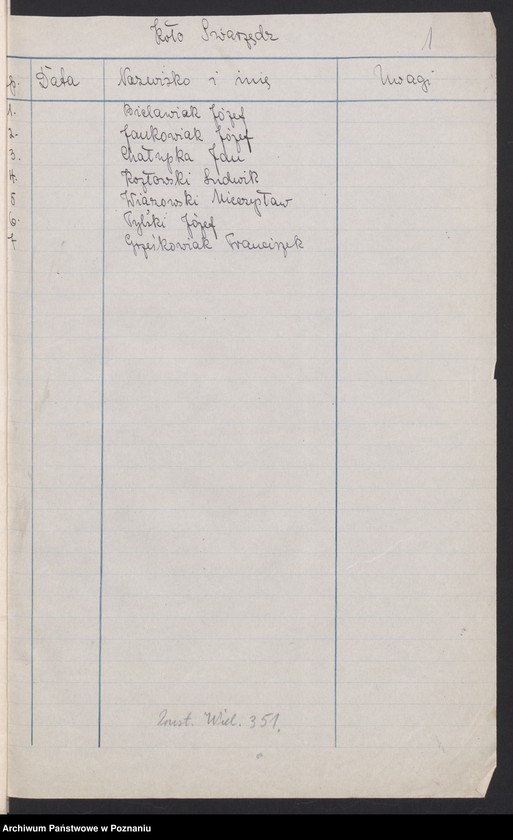 Koło Swarzędz 1
p. Data Nazwisko i imię Uwagi
1. Bielawiak Józef
2. Jankowiak Józef
3. Chałupka Jan
4. Kozłowski Ludwik
5 Wiązowski Mieczysław
6. Tylski Józef
7 Grześkowiak Franciszek
Wiel. 351.
Archiwum Państwowe w Poznaniu